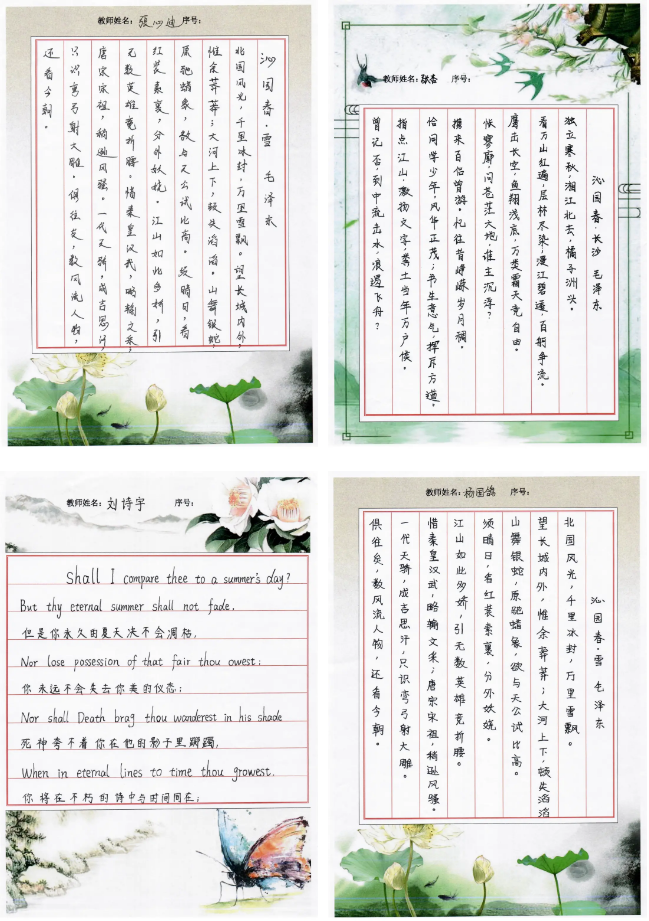 教师姓名：張沁迪 序号：
沁园春·雪 毛泽东
北国风光，千里冰封，万里雪飘。望长城内外，
惟余莽莽；大河上下，顿失滔滔。山舞银蛇，
原驰蜡象，欲与天公试比高。须晴日，看
红装素裹，分外妖娆。江山如此多娇，引
无数英雄竞折腰。惜秦皇汉武，略输文采，
唐宗宋祖，稍逊风骚。一代天骄，成吉思汗，
只识弯弓射大雕。俱往矣，数风流人物，
还看今朝。
教师姓名： 序号：
沁园春·长沙 毛泽东
独立寒秋，湘江北去，橘子洲头。
看万山红遍，层林尽染；漫江碧透，百舸争流。
鹰击长空，鱼翔浅底，万类霜天竞自由。
怅寥廓，问苍茫大地，谁主沉浮？
携来百侣曾游。忆往昔峥嵘岁月稠。
恰同学少年，风华正茂；书生意气，挥斥方遒。
指点江山，激扬文字，粪土当年万户侯。
曾记否，到中流击水，浪遏飞舟？
教师姓名：刘诗宇 序号：
Shall I compare thee to a summer's day?
But thy eternal summer shall not fade,
但是你永久的夏天决不会凋枯，
Nor lose possession of that fair thou owest;
你永远不会失去你美的仪态；
Nor shall Death brag thou wanderest in his shade
死神夸不着你在他的影子里踯躅，
When in eternal lines to time thou growest.
你将在不朽的诗中与时间同在；
教师姓名：杨国鸽 序号：
沁园春·雪 毛泽东
北国风光，千里冰封，万里雪飘。
望长城内外，惟余莽莽；大河上下，顿失滔滔
山舞银蛇，原驰蜡象，欲与天公试比高。
须晴日，看红装素裹，分外妖娆。
江山如此多娇，引无数英雄竞折腰。
惜秦皇汉武，略输文采，唐宗宋祖，稍逊风骚。
一代天骄，成吉思汗，只识弯弓射大雕。
俱往矣，数风流人物，还看今朝。